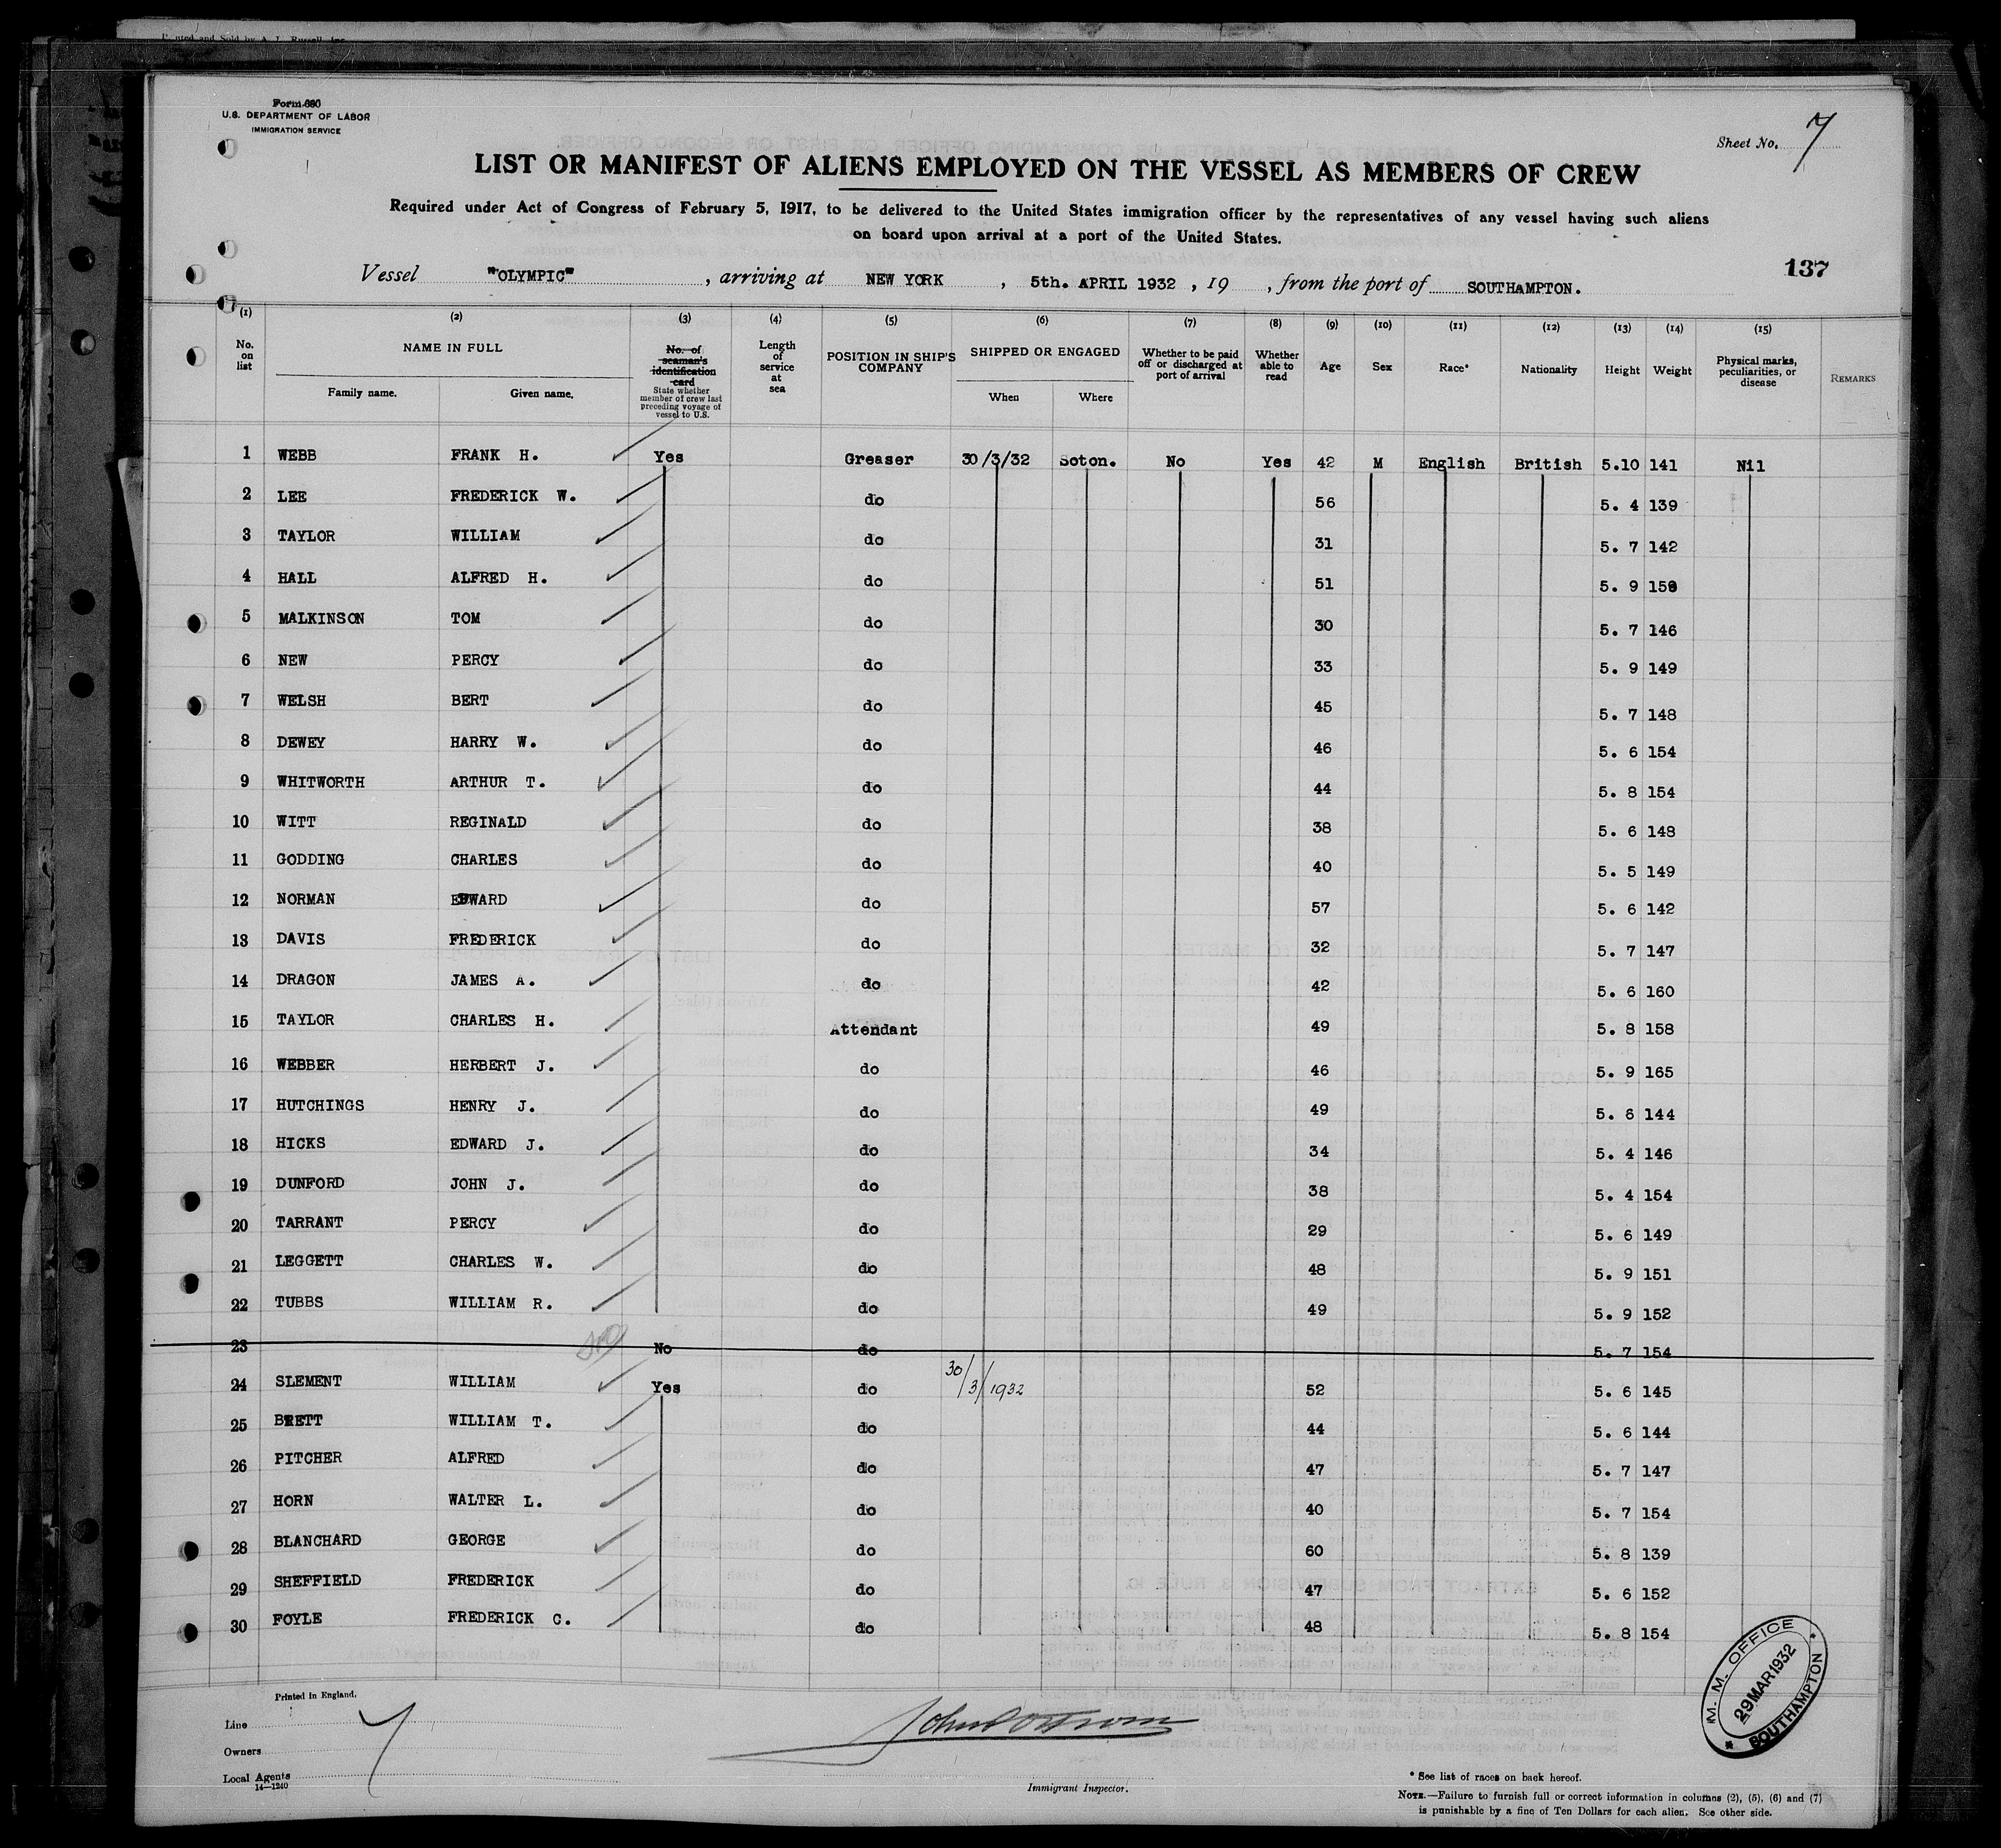 Form 680
U.S. DEPARTMENT OF LABOR
IMMIGRATION SERVICE
Sheet No. 7
LIST OR MANIFEST OF ALIENS EMPLOYED ON THE VESSEL AS MEMBERS OF CREW
Required under Act of Congress of February 5, 1917, to be delivered to the United States immigration officer by the representatives of any vessel having such aliens
on board upon arrival at a port of the United States.
137
Vessel "OLYMPIC", arriving at NEW YORK, 5th. APRIL 1932, 19 , from the port of SOUTHAMPTON.
(1) (2) (3) (4) (5) (6) (7) (8) (9) (10) (11) (12) (13) (14) (15)
No. on list NAME IN FULL Family name. Given name. No. of seaman's identification card State whether member of crew last preceding voyage of vessel to U.S. Length of service at sea POSITION IN SHIP'S COMPANY SHIPPED OR ENGAGED When Where Whether to be paid off or discharged at port of arrival Whether able to read Age Sex Race* Nationality Height Weight Physical marks, peculiarities, or disease REMARKS
1 WEBB FRANK H. Yes Greaser 30/3/32 Soton. No Yes 42 M English British 5.10 141 Nil
2 LEE FREDERICK W. do 56 5. 4 139
3 TAYLOR WILLIAM do 31 5. 7 142
4 HALL ALFRED H. do 51 5. 9 159
5 MALKINSON TOM do 30 5. 7 146
6 NEW PERCY do 33 5. 9 149
7 WELSH BERT do 45 5. 7 148
8 DEWEY HARRY W. do 46 5. 6 154
9 WHITWORTH ARTHUR T. do 44 5. 8 154
10 WITT REGINALD do 38 5. 6 148
11 GODDING CHARLES do 40 5. 5 149
12 NORMAN EDWARD do 57 5. 6 142
13 DAVIS FREDERICK do 32 5. 7 147
14 DRAGON JAMES A. do 42 5. 6 160
15 TAYLOR CHARLES H. Attendant 49 5. 8 158
16 WEBBER HERBERT J. do 46 5. 9 165
17 HUTCHINGS HENRY J. do 49 5. 6 144
18 HICKS EDWARD J. do 34 5. 4 146
19 DUNFORD JOHN J. do 38 5. 4 154
20 TARRANT PERCY do 29 5. 6 149
21 LEGGETT CHARLES W. do 48 5. 9 151
22 TUBBS WILLIAM R. do 49 5. 9 152
23 No do 5. 7 154
24 SLEMENT WILLIAM Yes do 30/3/1932 52 5. 6 145
25 BRETT WILLIAM T. do 44 5. 6 144
26 PITCHER ALFRED do 47 5. 7 147
27 HORN WALTER L. do 40 5. 7 154
28 BLANCHARD GEORGE do 60 5. 8 139
29 SHEFFIELD FREDERICK do 47 5. 6 152
30 FOYLE FREDERICK C. do 48 5. 8 154
M. M. OFFICE
29 MAR 1932
SOUTHAMPTON
Printed in England.
Line
Owners
Local Agents
14—1240
7
Immigrant Inspector.
* See list of races on back hereof.
NOTE.—Failure to furnish full or correct information in columns (2), (5), (6) and (7)
is punishable by a fine of Ten Dollars for each alien. See other side.